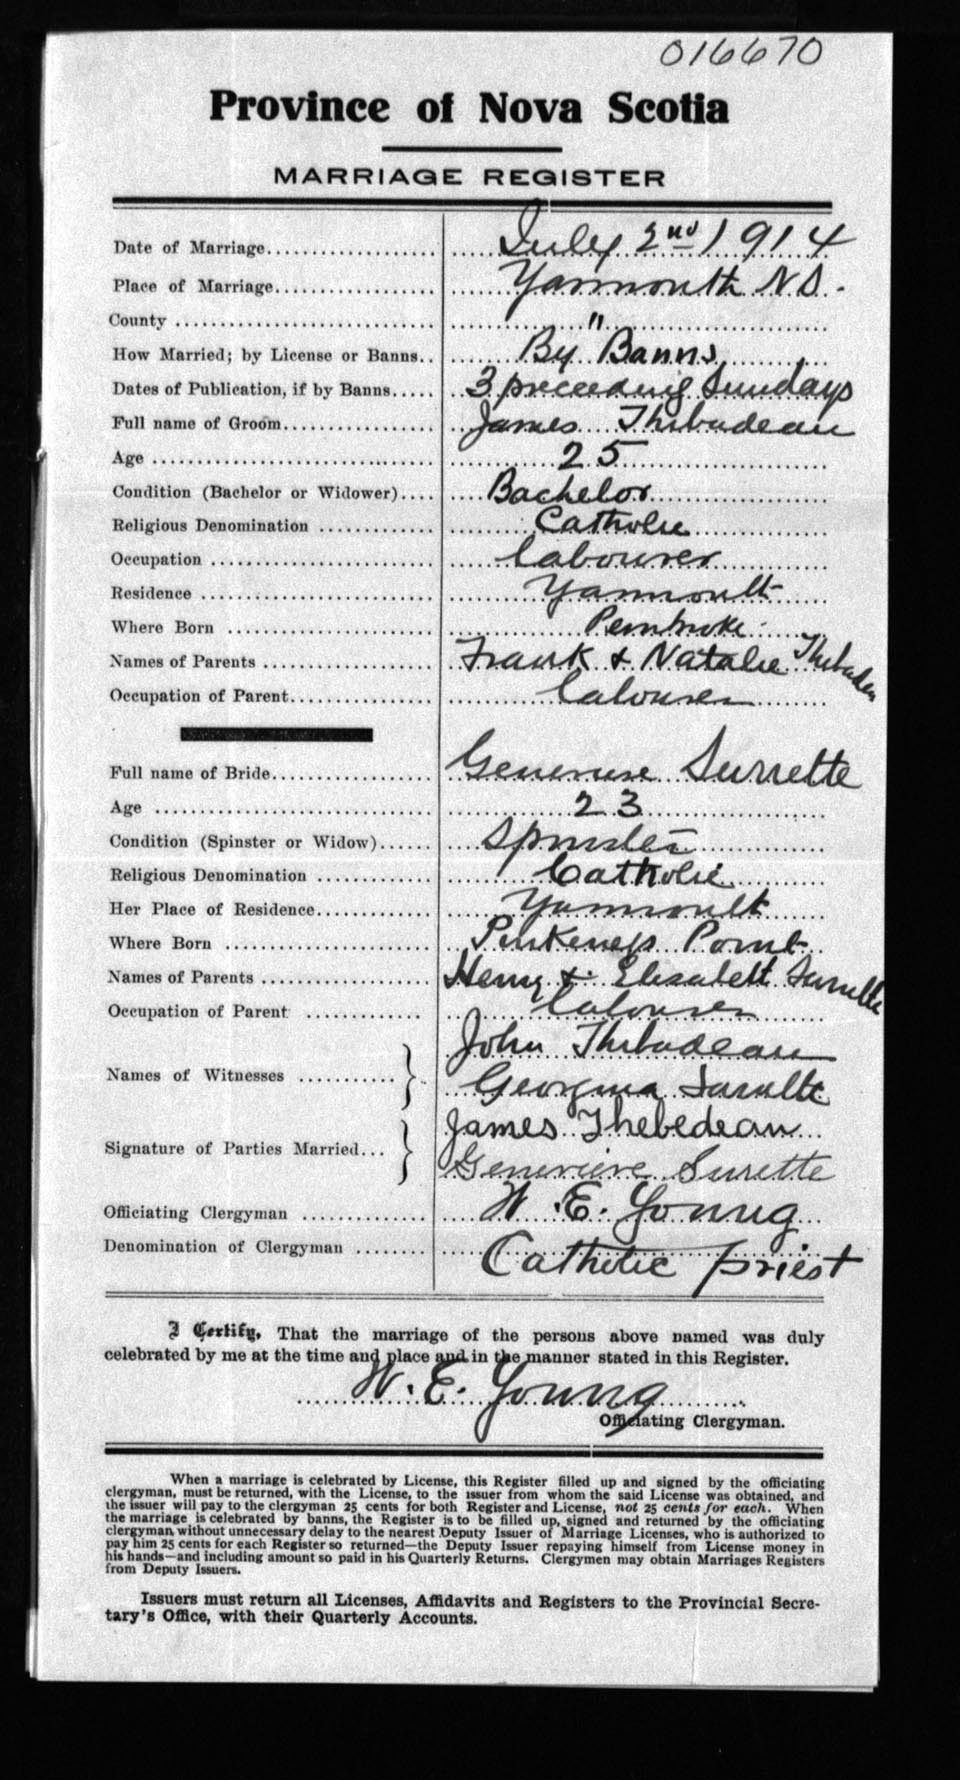 016670
Province of Nova Scotia
MARRIAGE REGISTER
Date of Marriage.................... July 2nd 1914
Place of Marriage.................... Yarmouth N S.
County .................... "
How Married; by License or Banns.. By Banns
Dates of Publication, if by Banns..... 3 preceeding Sundays
Full name of Groom.................... James Thibadeau
Age .................... 25
Condition (Bachelor or Widower).... Bachelor
Religious Denomination .............. Catholic
Occupation .................... labourer
Residence .................... Yarmouth
Where Born .................... Pembroke
Names of Parents .................... Frank & Natalie Thibadeau
Occupation of Parent.................... labourer
Full name of Bride.................... Surrette
Age .................... 23
Condition (Spinster or Widow)...... Spinster
Religious Denomination .............. Catholic
Her Place of Residence.............. Yarmouth
Where Born .................... Pinkneys Point
Names of Parents .................... Henry & Elizabeth Surrette
Occupation of Parent .............. labourer
John Thibadeau
Names of Witnesses ...........
Georgina Surrette
James Thebedeau
Signature of Parties Married...
Genevieve Surrette
Officiating Clergyman .............. W. E. Young
Denomination of Clergyman ........ Catholic priest
I Certify, That the marriage of the persons above named was duly
celebrated by me at the time and place and in the manner stated in this Register.
W. E. Young
Officiating Clergyman.
When a marriage is celebrated by License, this Register filled up and signed by the officiating
clergyman, must be returned, with the License, to the issuer from whom the said License was obtained, and
the issuer will pay to the clergyman 25 cents for both Register and License, not 25 cents for each. When
the marriage is celebrated by banns, the Register is to be filled up, signed and returned by the officiating
clergyman without unnecessary delay to the nearest Deputy Issuer of Marriage Licenses, who is authorized to
pay him 25 cents for each Register so returned—the Deputy Issuer repaying himself from License money in
his hands—and including amount so paid in his Quarterly Returns. Clergymen may obtain Marriages Registers
from Deputy Issuers.
Issuers must return all Licenses, Affidavits and Registers to the Provincial Secre-
tary's Office, with their Quarterly Accounts.